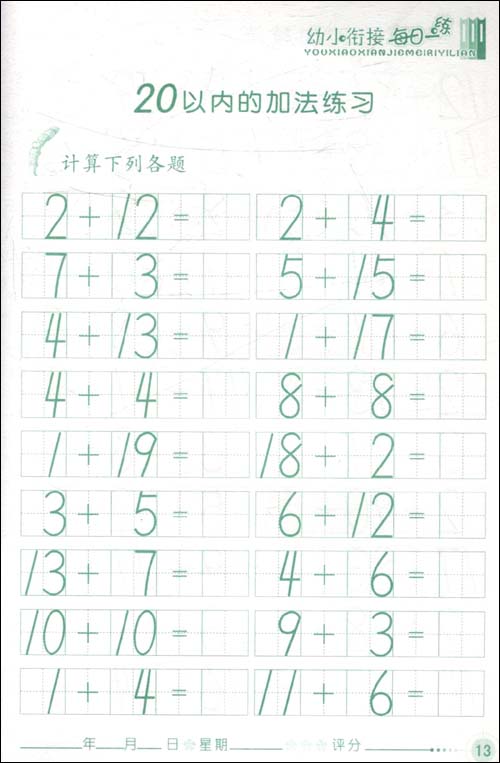 幼小衔接 每日一练
YOUXIAOXIANJIEMEIRIYILIAN
20以内的加法练习
计算下列各题
2+12= 2+4=
7+3= 5+15=
4+13= 1+17=
4+4= 8+8=
1+19= 18+2=
3+5= 6+12=
13+7= 4+6=
10+10= 9+3=
1+4= 11+6=
年 月 日 星期 评分 13